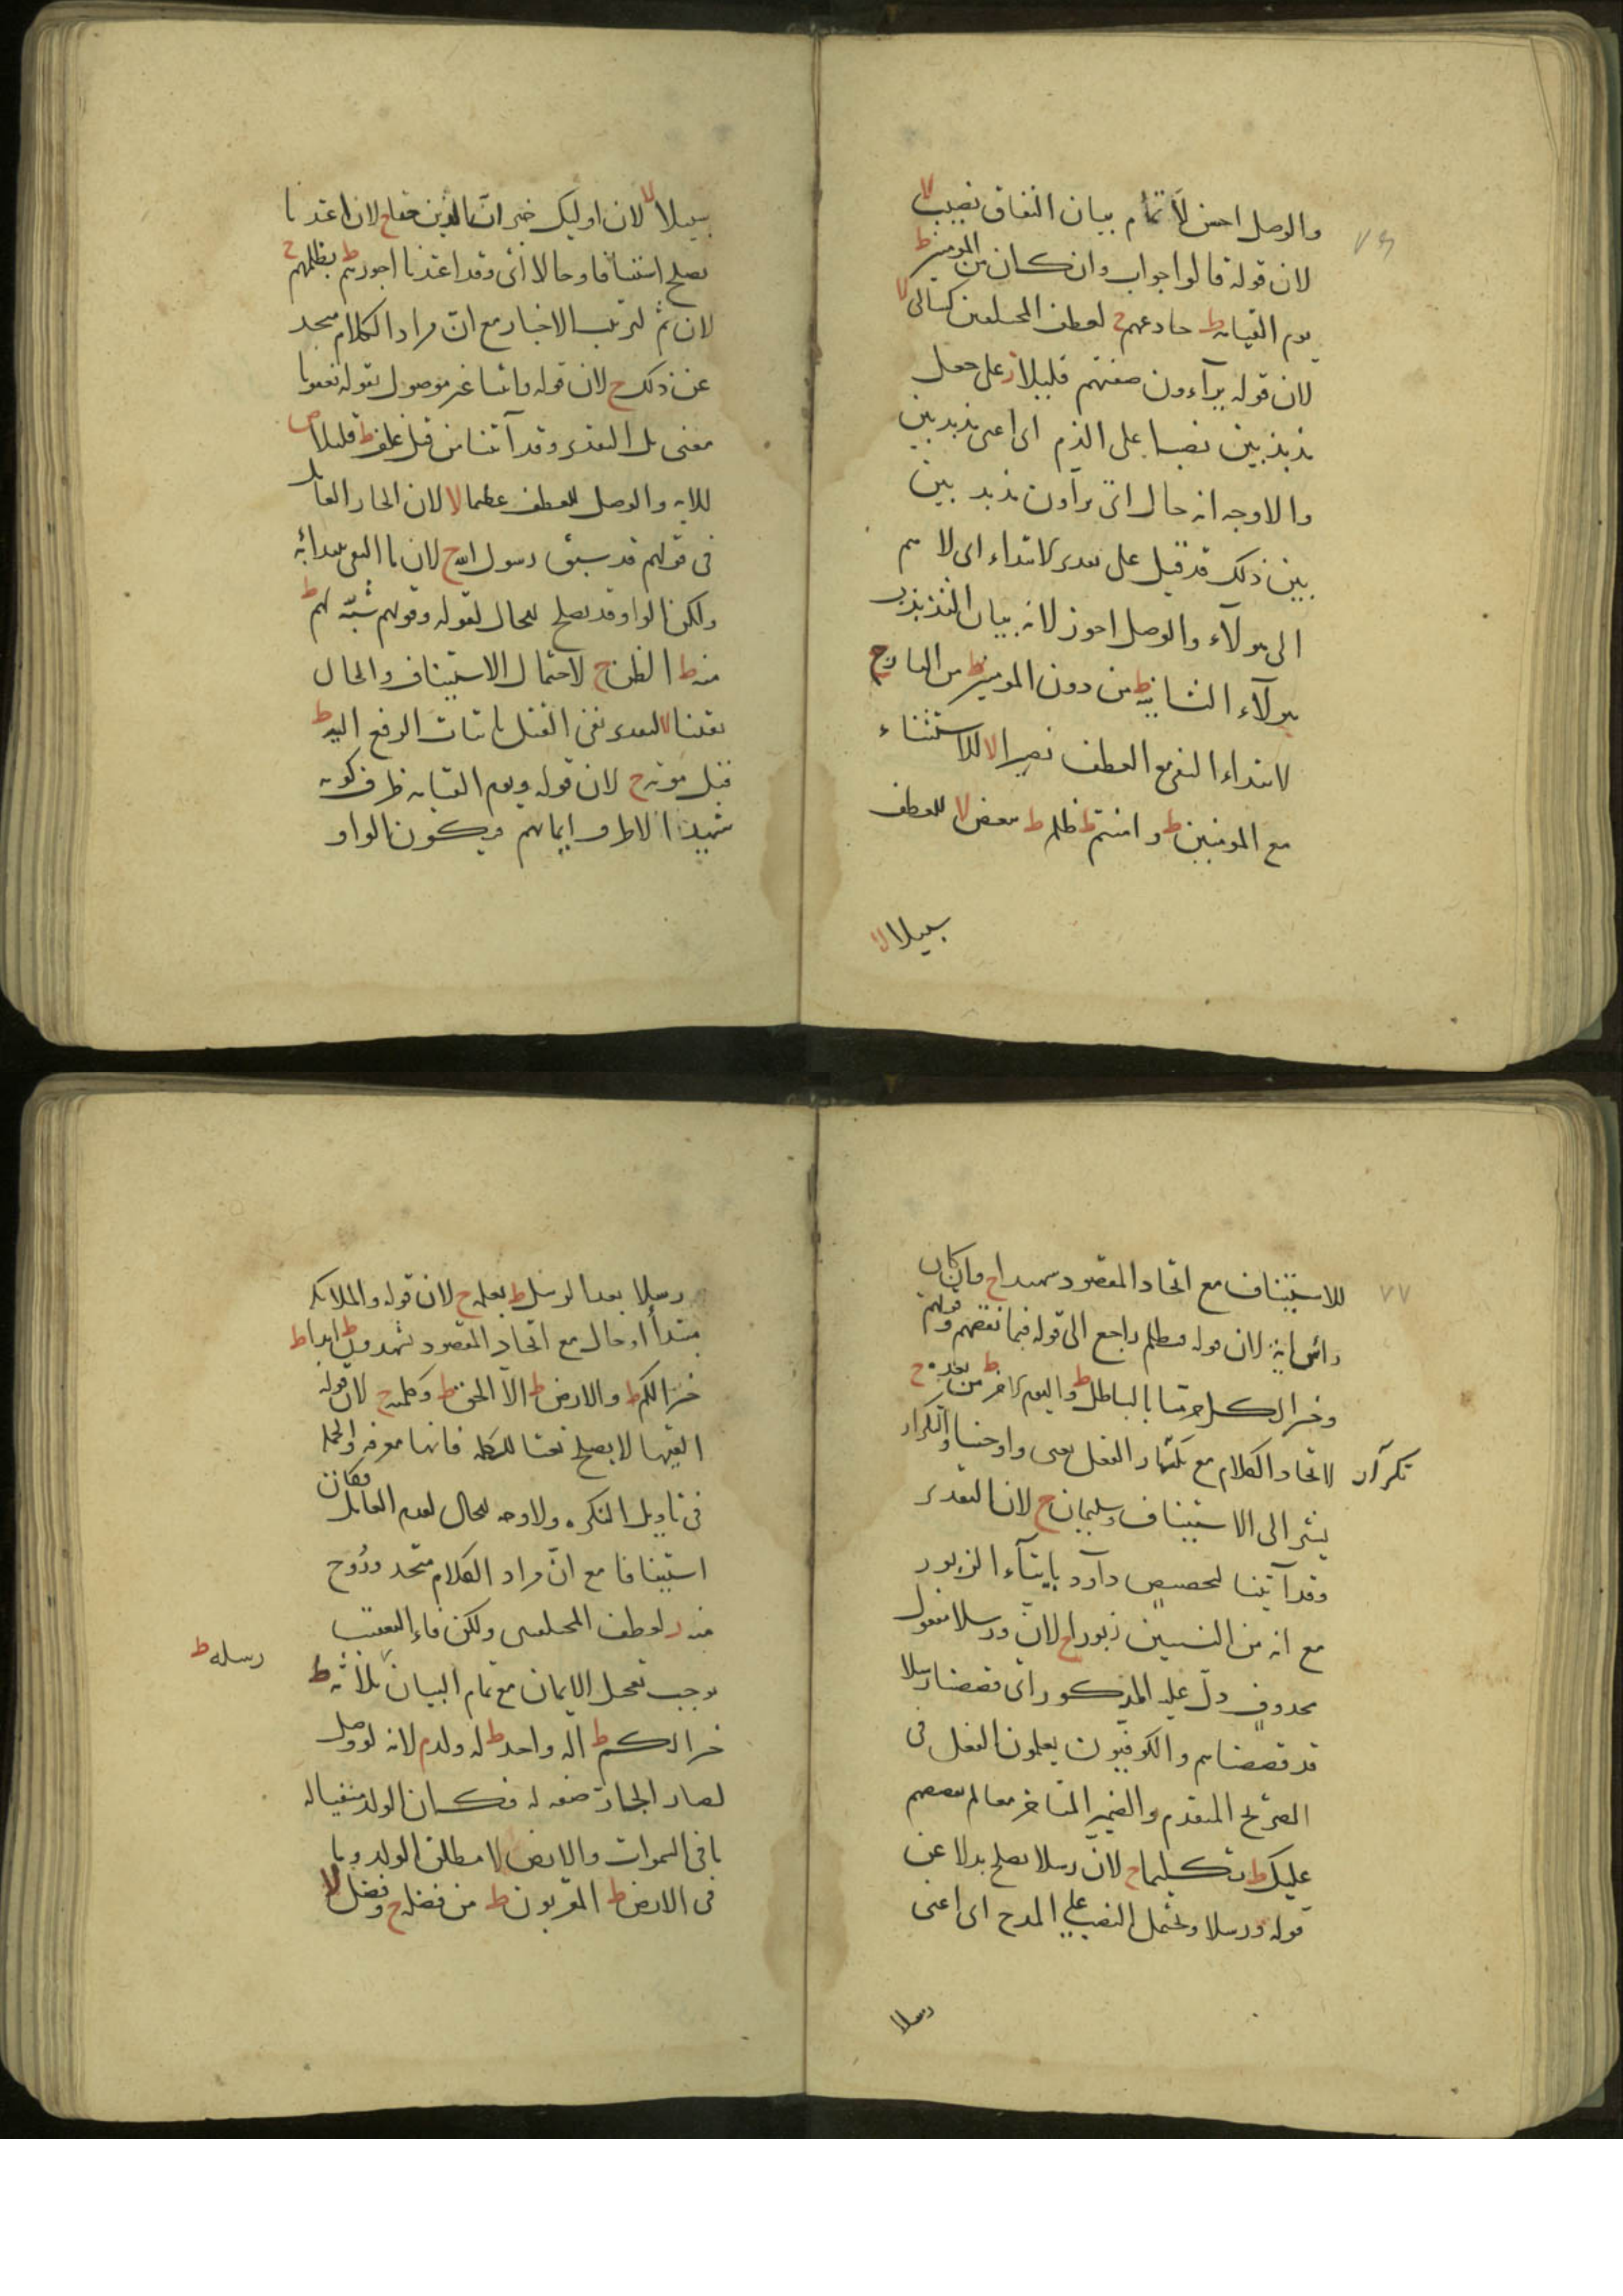 والوصل احسن لاتمام بيان النفاق نصيب لا
٧٦
لان قوله قالوا جواب وان كان من المومنين ط
يوم القيامة ط خادعهم ح لعطف المختلفين كسالى لا
لان قوله يرآءون صفتهم قليلا ز على جعل
مذبذبين نصبا على الذم اى اعنى مذبذبين
والاوجه انه حال اى يرآون مذبذبين
بين ذلك قد قيل على تقدير لابتداء اى لا هم
الى هولآء والوصل اجوز لانه بيان التذبذب
هولآء الثانية ط من دون المومنين ط من النار ج
لابتداء النفى مع العطف نصيرا لا للاستثناء
مع المومنين ط وامنتم ط ظلم ط ببعض لا للعطف
سبيلا لا
سبيلا لا لان اوليك خبر ان الذين حقا ح لان اعتدنا
يصلح استينافا وحالا اى وقد اعتدنا اجورهم ط بظلمهم ح
لان ثم لترتيب الاخبار مع ان مراد الكلام متحد
عن ذلك ح لان قوله واتينا غير موصول بقوله فعفونا
معنى بل التقدير وقد آتينا من قبل غلف ط قليلا ص
للاية والوصل للعطف عظيما لا لان الجار العامل
فى قولهم قد سبق رسول الله ح لان ما النفى يبدا به
ولكن الواو قد يصلح للحال لقوله وقولهم شبه لهم ط
منه ط الظن ح لاحتمال الاستيناف والحال
يقينا لا لتقدير نفى القتل باثبات الرفع اليه ط
قبل موته ح لان قوله ويوم القيامة ظرف كونه
شهيدا لا ظرف ايمانهم ويكون الواو
للاستيناف مع اتحاد المقصود شهيدا ح وان كان
٧٧
راس اية لان قوله فبظلم راجع الى قوله فبما نقضهم وقولهم
وخبر الكل حرمنا بالباطل ط واليوم الاخر ط من بعده ح
لاتحاد الكلام مع تكرار الفعل يعنى واوحينا والتكرار
تكرآر
يشير الى الاستيناف وسليمان ح لان التقدير
وقد آتينا لتخصيص دآود بايتآء الزبور
مع انه من النبيين زبورا ح لان ورسلا مفعول
محذوف دل عليه المذكور اى قصصنا رسلا
قد قصصناهم والكوفيون يعملون الفعل فى
الصريح المتقدم والضمير المتاخر معا لم نقصصهم
عليك ط تكليما ح لان رسلا يصلح بدلا عن
قوله ورسلا ويحتمل النصب على المدح اى اعنى
رسلا
رسلا بعد الرسل ط بعلمه ح لان قوله والملايكة
مبتدأ او حال مع اتحاد المقصود يشهدون ط ابدا ط
خيرا لكم ط والارض ط الا الحق ط وكلمته ح لان قوله
القيها لا يصلح نعتا للكلمة فانها معرفة والجملة
فى تاويل النكرة ولا وجه للحال لعدم العامل فكان
استينافا مع ان مراد الكلام متحد وروح
منه ز لعطف المختلفين ولكن فاء التعقيب
يوجب تعجيل الايمان مع تمام البيان ثلاثة ط
رسله ط
خيرا لكم ط اله واحد ط له ولد م لانه لو وصل
لصار الجار صفة له فكان الولد منفيا له
ما فى السموات والارض لا مطلق الولد وما
فى الارض ط المقربون ط من فضله ح وفضل لا